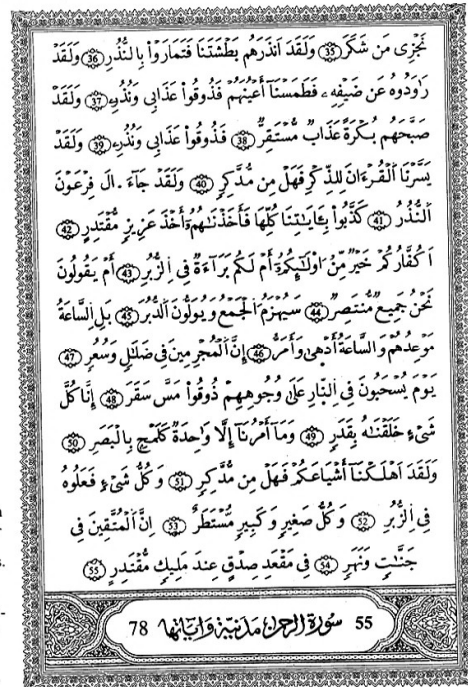 نَجْزِى مَن شَكَرَ (35) وَلَقَدَ اَنذَرَهُم بَطْشَتَنَا فَتَمَارَوْاْ بِالنُّذُرِ (36) وَلَقَدْ
رَاوَدُوهُ عَن ضَيْفِهِۦ فَطَمَسْنَآ أَعْيُنَهُمْ فَذُوقُواْ عَذَابِى وَنُذُرِۦ (37) وَلَقَدْ
صَبَّحَهُم بُكْرَةً عَذَابٌ مُّسْتَقِرٌّ (38) فَذُوقُواْ عَذَابِى وَنُذُرِۦ (39) وَلَقَدْ
يَسَّرْنَا اَلْقُرْءَانَ لِلذِّكْرِ فَهَلْ مِن مُّدَّكِرٍ (40) وَلَقَدْ جَآءَ الَ فِرْعَوْنَ
اَلنُّذُرُ (41) كَذَّبُواْ بِـَٔايَٰتِنَا كُلِّهَا فَأَخَذْنَٰهُمُۥٓ أَخْذَ عَزِيزٍ مُّقْتَدِرٍ (42)
اَكُفَّارُكُمْ خَيْرٌ مِّنُ اوْلَٰٓئِكُمُۥٓ أَمْ لَكُم بَرَآءَةٌ فِى اِلزُّبُرِ (43) أَمْ يَقُولُونَ
نَحْنُ جَمِيعٌ مُّنتَصِرٌ (44) سَيُهْزَمُ اُلْجَمْعُ وَيُوَلُّونَ اَلدُّبُرَ (45) بَلِ اِلسَّاعَةُ
مَوْعِدُهُمْ وَالسَّاعَةُ أَدْهَىٰ وَأَمَرُّ (46) إِنَّ اَلْمُجْرِمِينَ فِى ضَلَٰلٍ وَسُعُرٍ (47)
يَوْمَ يُسْحَبُونَ فِى اِلنَّارِ عَلَىٰ وُجُوهِهِمْ ذُوقُواْ مَسَّ سَقَرَ (48) إِنَّا كُلَّ
شَىْءٍ خَلَقْنَٰهُ بِقَدَرٍ (49) وَمَآ أَمْرُنَآ إِلَّا وَٰحِدَةٌ كَلَمْحٍ بِالْبَصَرِ (50)
وَلَقَدَ اَهْلَكْنَآ أَشْيَاعَكُمْ فَهَلْ مِن مُّدَّكِرٍ (51) وَكُلُّ شَىْءٍ فَعَلُوهُ
فِى اِلزُّبُرِ (52) وَكُلُّ صَغِيرٍ وَكَبِيرٍ مُّسْتَطَرٌ (53) اِنَّ اَلْمُتَّقِينَ فِى
جَنَّٰتٍ وَنَهَرٍ (54) فِى مَقْعَدِ صِدْقٍ عِندَ مَلِيكٍ مُّقْتَدِرٍ (55)
55 سورة الرحمن مدنية وآياتها 78